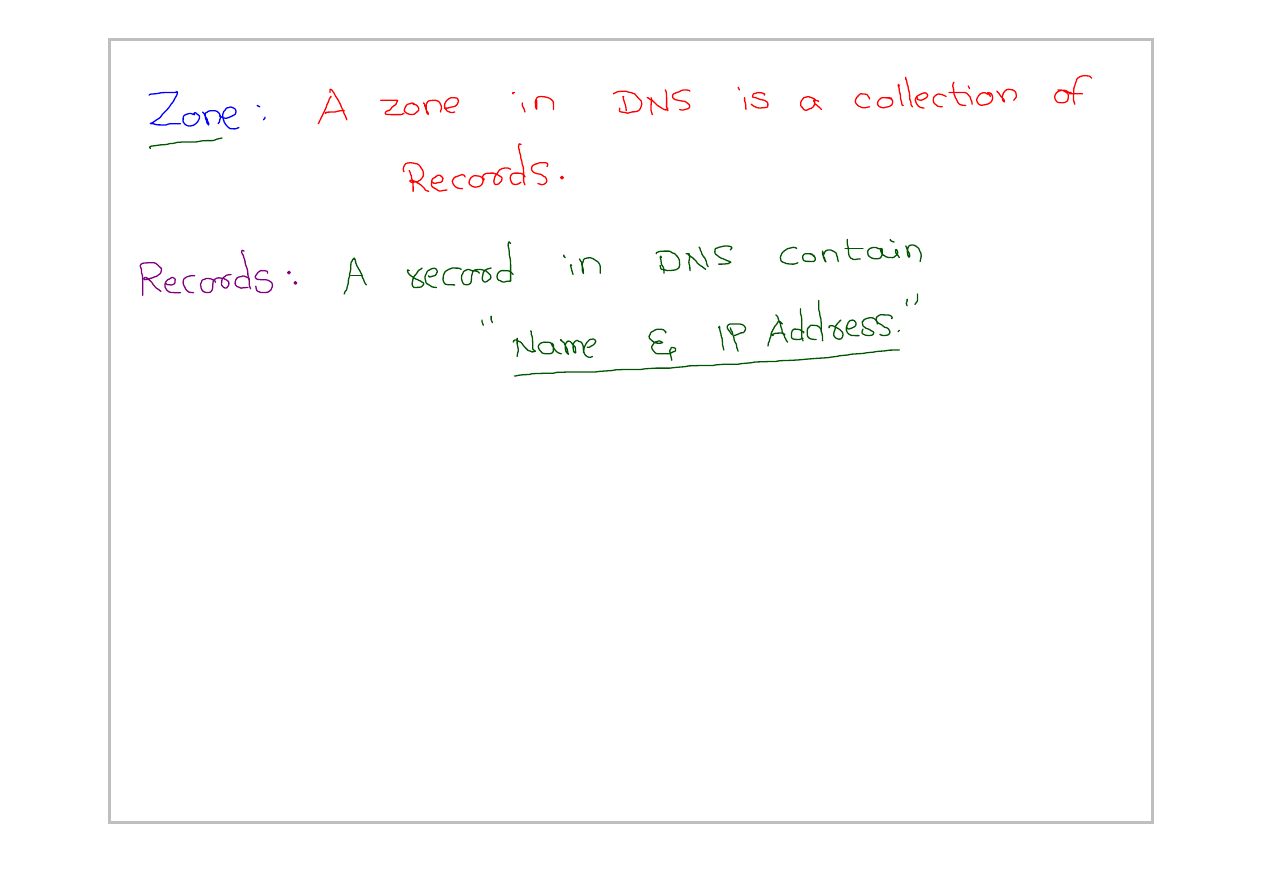 Zone: A zone in DNS is a collection of
Records.
Records: A record in DNS contain
"Name & IP Address."